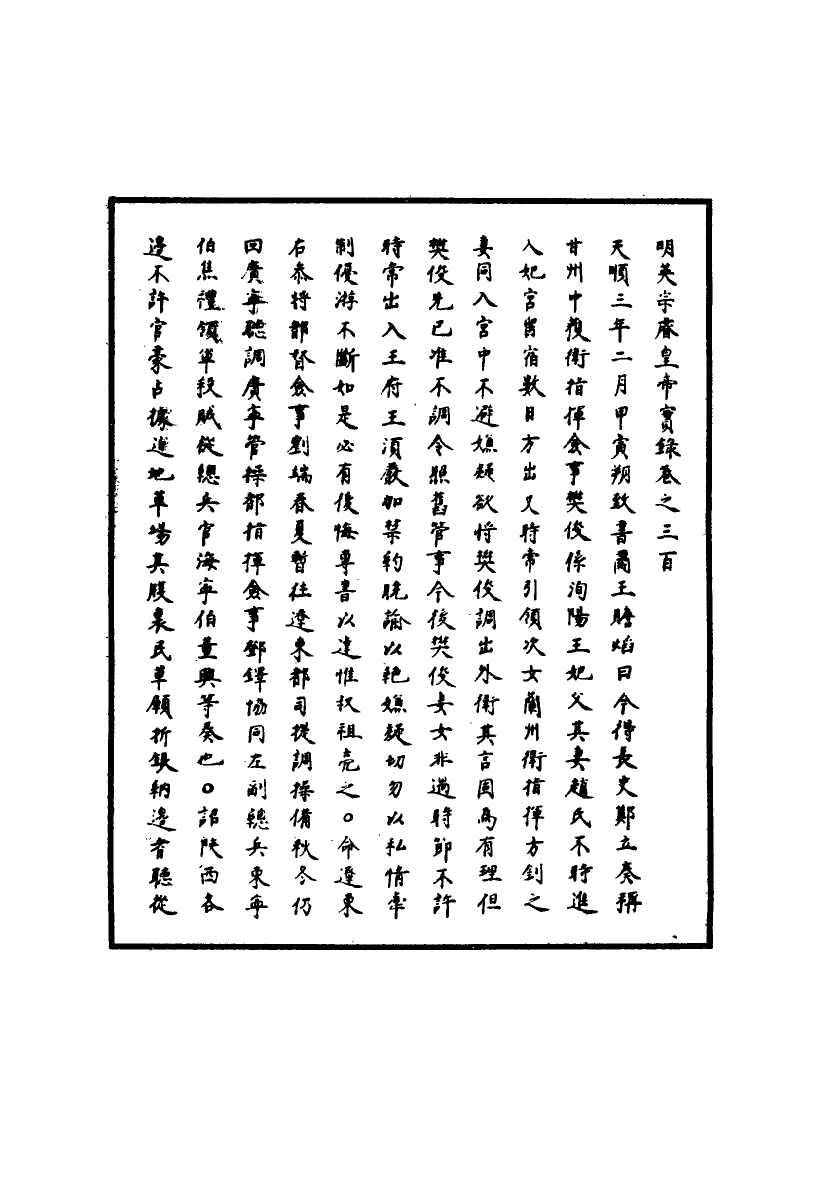 明英宗睿皇帝實錄卷之三百
天順三年二月甲寅朔致書肅王贍焰曰今得長史鄭立奏稱
甘州中護衛指揮僉事樊俊係洵陽王妃父其妻趙氏不時進
入妃宮留宿數日方出又時常引領次女蘭州衛指揮方釗之
妻同入宮中不避嫌疑欲將樊俊調出外衛其言固為有理但
樊俊先已准不調令照舊管事今後樊俊妻女非遇時節不許
時常出入王府王須嚴加禁約曉諭以絕嫌疑切勿以私情牽
制優游不斷如是必有後悔專書以達惟叔祖亮之○命遼東
右參將都督僉事劉端春夏暫往遼東都司提調操備秋冬仍
回廣寧聽調廣寧管操都指揮僉事鄧鐸協同左副總兵東寧
伯焦禮領軍殺賊從總兵官海寧伯董興等奏也○詔陝西各
邊不許官豪占據進地草場其腹裏民草願折銀納邊者聽從